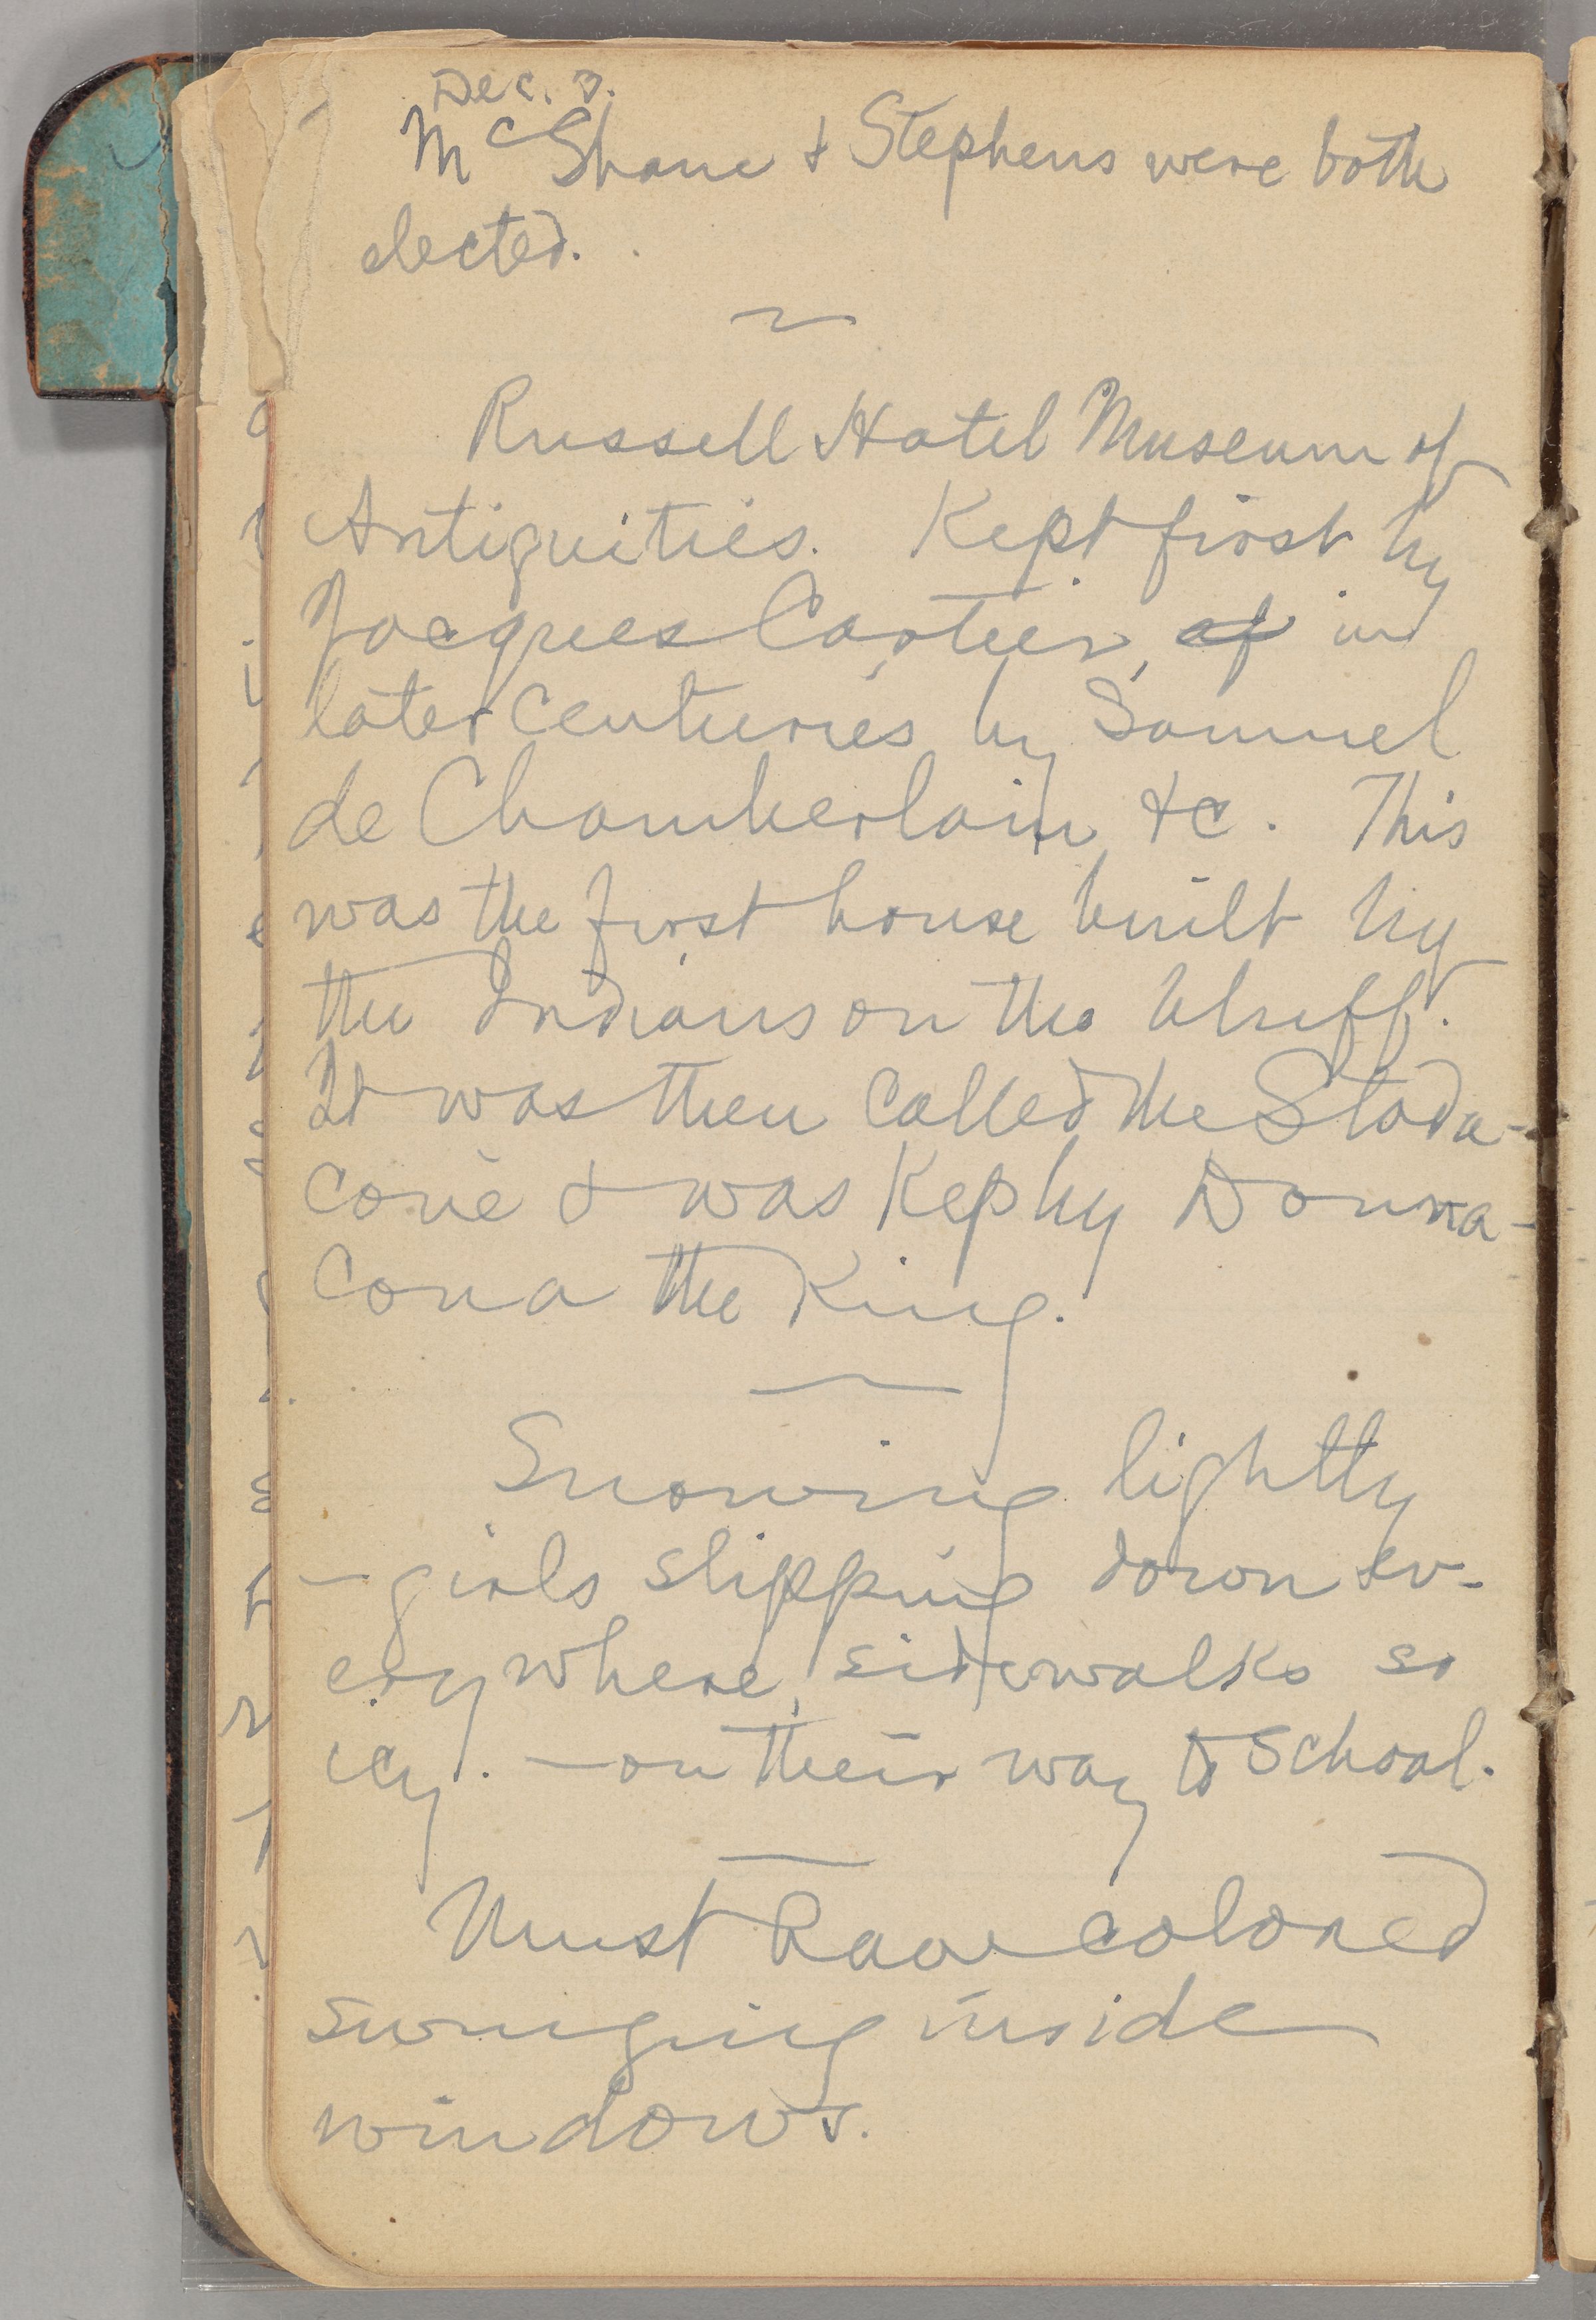 Dec. 3.
McShane & Stephens were both
elected.
Russell Hotel Museum of
Antiquities. Kept first by
Jacques Cartier, of in
later centuries by Samuel
de Chamberlain, &c. This
was the first house built by
the Indians on the bluff.
It was then called the Stada-
coné & was kep by Donna-
cona the King.
Snowing lightly
—girls slipping down ev-
erywhere, sidewalks so
icy. — on their way to school.
Must have colored
swinging inside
windows.